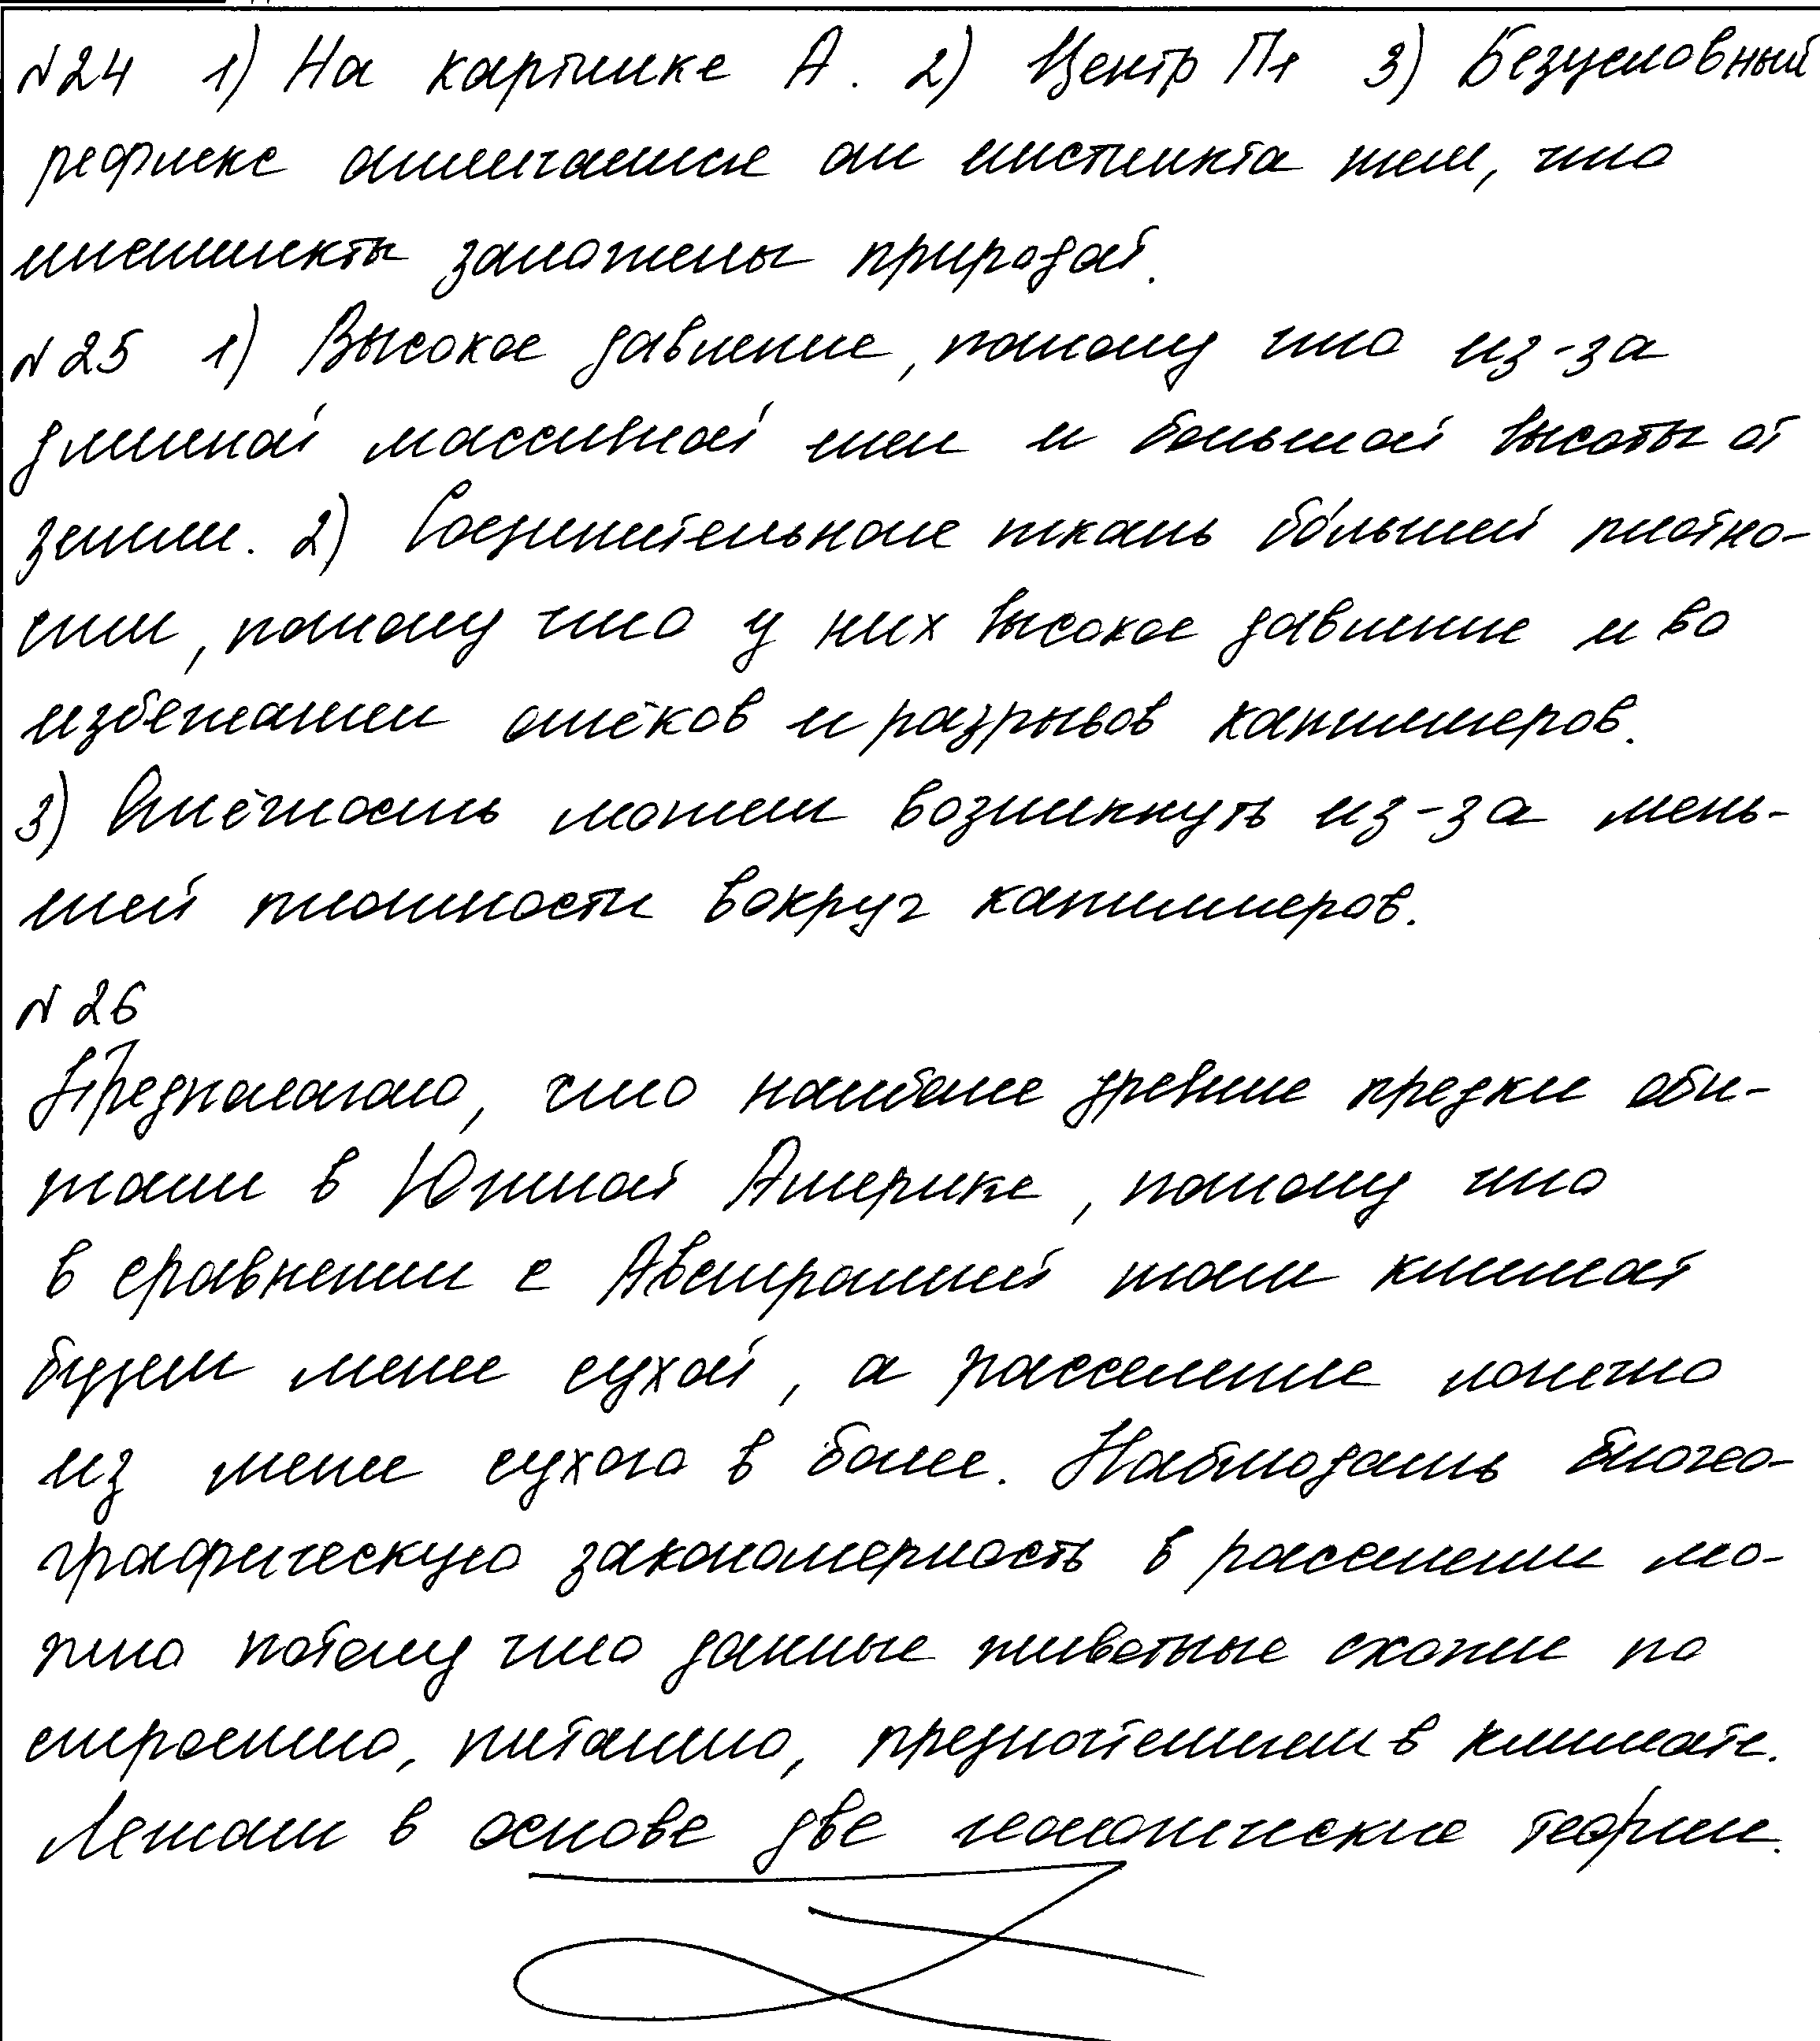 №24 1) На картинке А. 2) Центр П1 3) Безусловный
рефлекс отличается от инстинкта тем, что
инстинкты заложены природой.
№25 1) Высокое давление, потому что из-за
длинной массивной шеи и большой высоты от
земли. 2) Соединительная ткань бо́льшей плотно-
сти, потому что у них высокое давление и во
избежании отёков и разрывов капилляров.
3) Отёчность может возникнуть из-за мень-
шей плотности вокруг капилляров.
№26
Предполагаю, что наиболее древние предки оби-
тали в Южной Америке, потому что
в сравнении с Австралией там климат
будет менее сухой, а расселение логично
из менее сухого в более. Наблюдать биогео-
графическую закономерность в расселении мо-
жно потому что данные животные схожи по
строению, питанию, предпочтениям в климате.
Лежат в основе две теории.